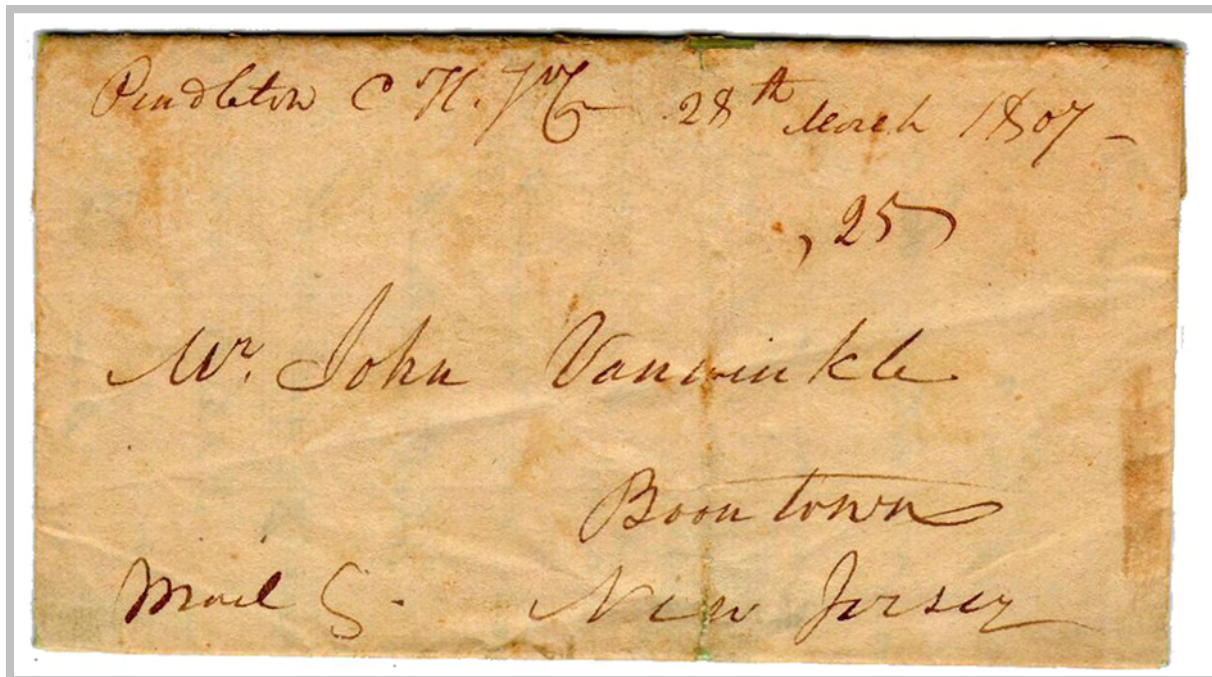 Pendleton C H. 28th March 1807 -
, 25
Mr. John Vanwinkle
Boontown
Mail New Jersey